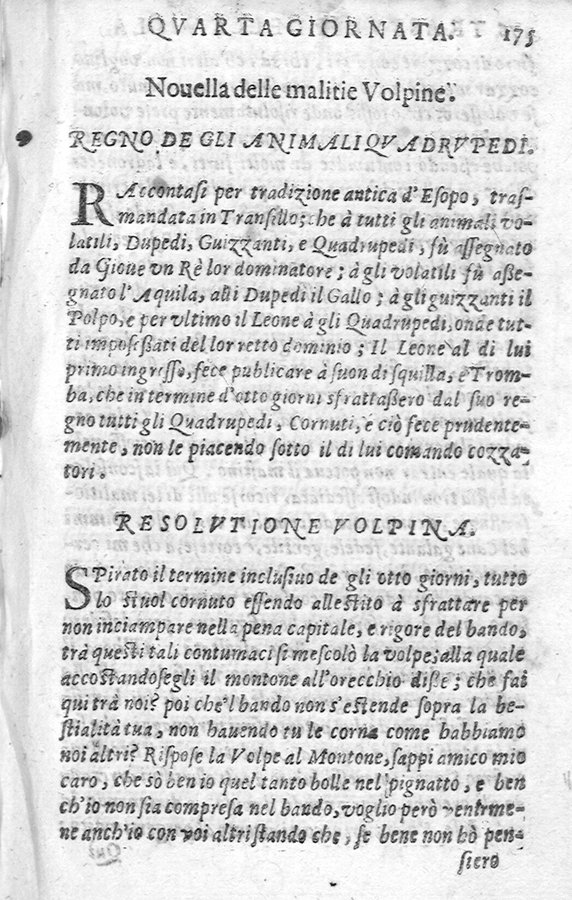 QVARTA GIORNATA. 175
Nouella delle malitie Volpine.
REGNO DE GLI ANIMALI QVADRVPEDI.
RAccontasi per tradizione antica d'Esopo, tras-
mandata in Transillo; che à tutti gli animali vo-
latili, Dupedi, Guizzanti, e Quadrupedi, fù assegnato
da Gioue vn Rè lor dominatore; à gli volatili fù asse-
gnato l'Aquila, alli Dupedi il Gallo; à gli guizzanti il
Polpo, e per vltimo il Leone à gli Quadrupedi, onde tut-
ti impossessati del lor retto dominio; Il Leone al di lui
primo ingresso, fece publicare à suon di squilla, e Trom-
ba, che in termine d'otto giorni sfrattassero dal suo re-
gno tutti gli Quadrupedi, Cornuti, e ciò fece prudente-
mente, non le piacendo sotto il di lui comando cozza-
tori.
RESOLVTIONE VOLPINA.
SPirato il termine inclusiuo de gli otto giorni, tutto
lo stuol cornuto essendo allestito à sfrattare per
non inciampare nella pena capitale, e rigore del bando,
trà questi tali contumaci si mescolò la volpe; alla quale
accostandosegli il montone all'orecchio disse; che fai
qui trà noi? poi che'l bando non s'estende sopra la be-
stialità tua, non hauendo tu le corna come habbiamo
noi altri? Rispose la Volpe al Montone, sappi amico mio
caro, che sò ben io quel tanto bolle nel pignatto, e ben
ch'io non sia compresa nel bando, voglio però venirme-
ne anch'io con voi altri stando che, se bene non hò pen-
siero